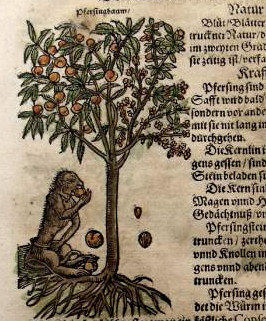 Pfersingbaum/
Natur
Blüt/Blätter
truckner Natur/d
im zweyten Grad
sie zeitig ist/verfa
Kraff
Pfersing sind
Safft wird bald
sondern vor ande
mit sie nit lang im
durchgehen.
Die Kernlin i
gens gessen/sind
Stein beladen si
Die Kern sin
Magen vnnd H
Gedächtnuß/v
Pfersingstein
truncken/zertheil
vnnd Knollen in
gens vnnd abend
truncken.
Pfersing ges
det die Würm i